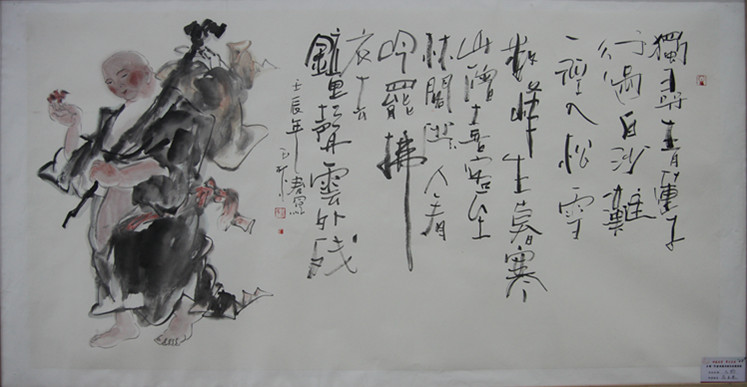 獨尋青蓮宇
行過白沙灘
一徑入松雪
數峰生暮寒
山僧喜客至
林閣供人看
吟罷拂
衣去
鐘聲雲外殘
壬辰年春寫